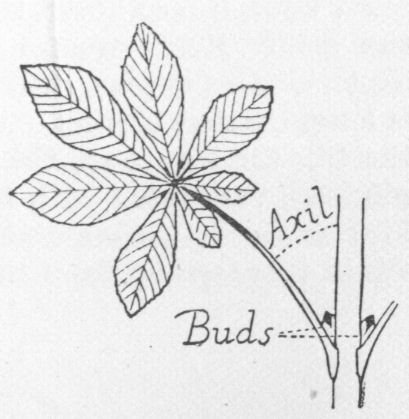 Axil
Buds